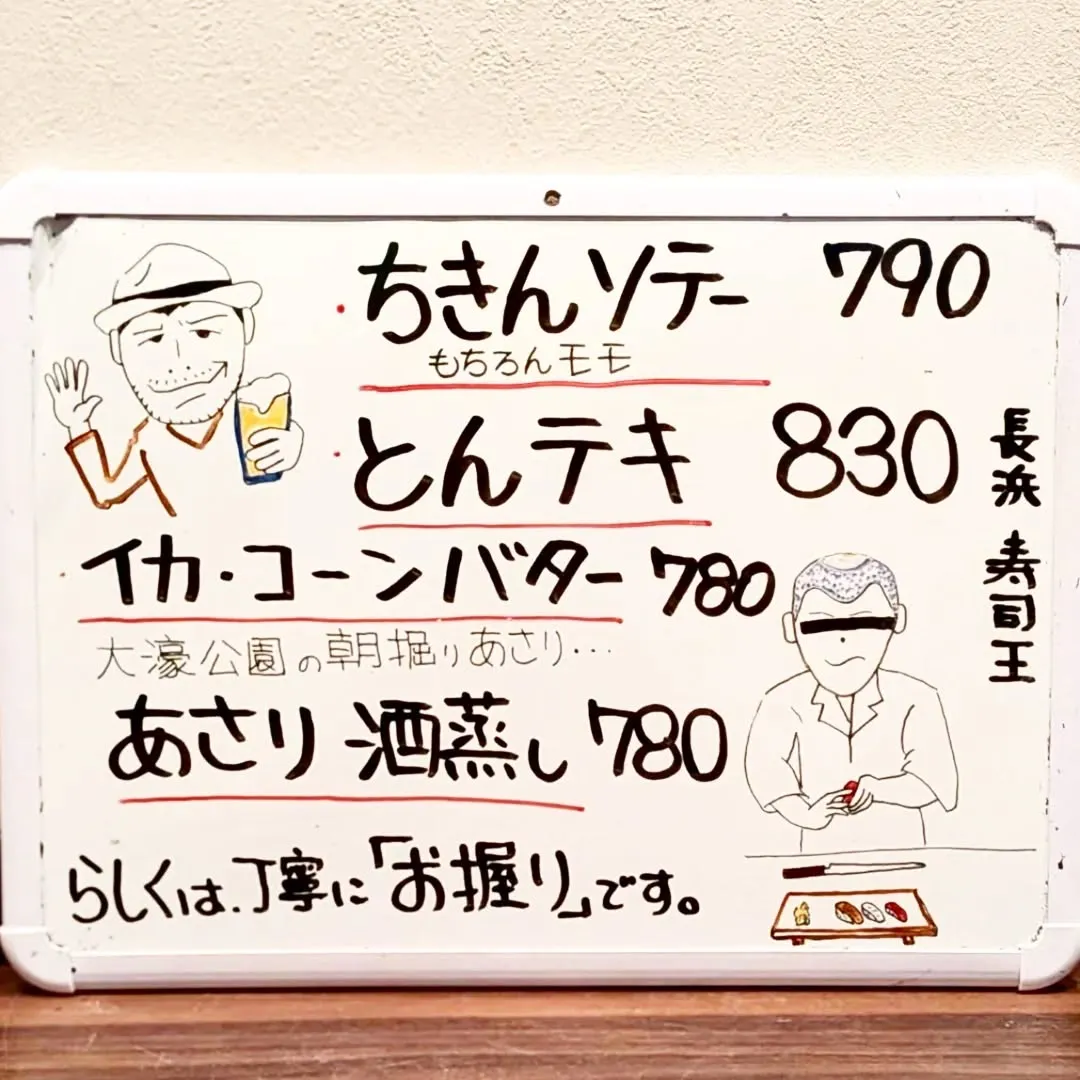 ちきんソテー 790
もちろんモモ
とんテキ 830
イカ・コーンバター 780
大濠公園の朝掘りあさり…
あさり酒蒸し 780
らしくは、丁寧に「お握り」です。
長浜 寿司王